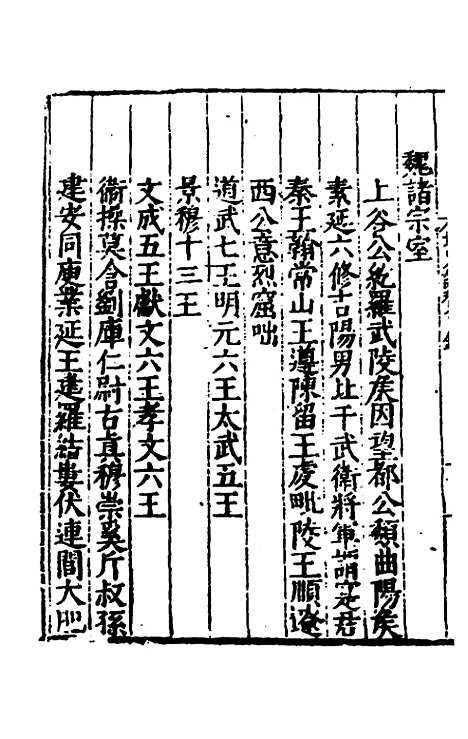 魏諸宗室
上谷公紇羅武陵矦因望都公頽曲陽矦
素延六修吉陽男比干武衛將軍謂定君
秦王翰常山王遵陳留王虔毗陵王順遼
西公意烈窟咄
道武七王明元六王太武五王
景穆十三王
文成五王獻文六王孝文六王
衛操莫含劉庫仁尉古眞穆崇奚斤叔孫
建安同庾業延王建羅結婁伏連閭大肥